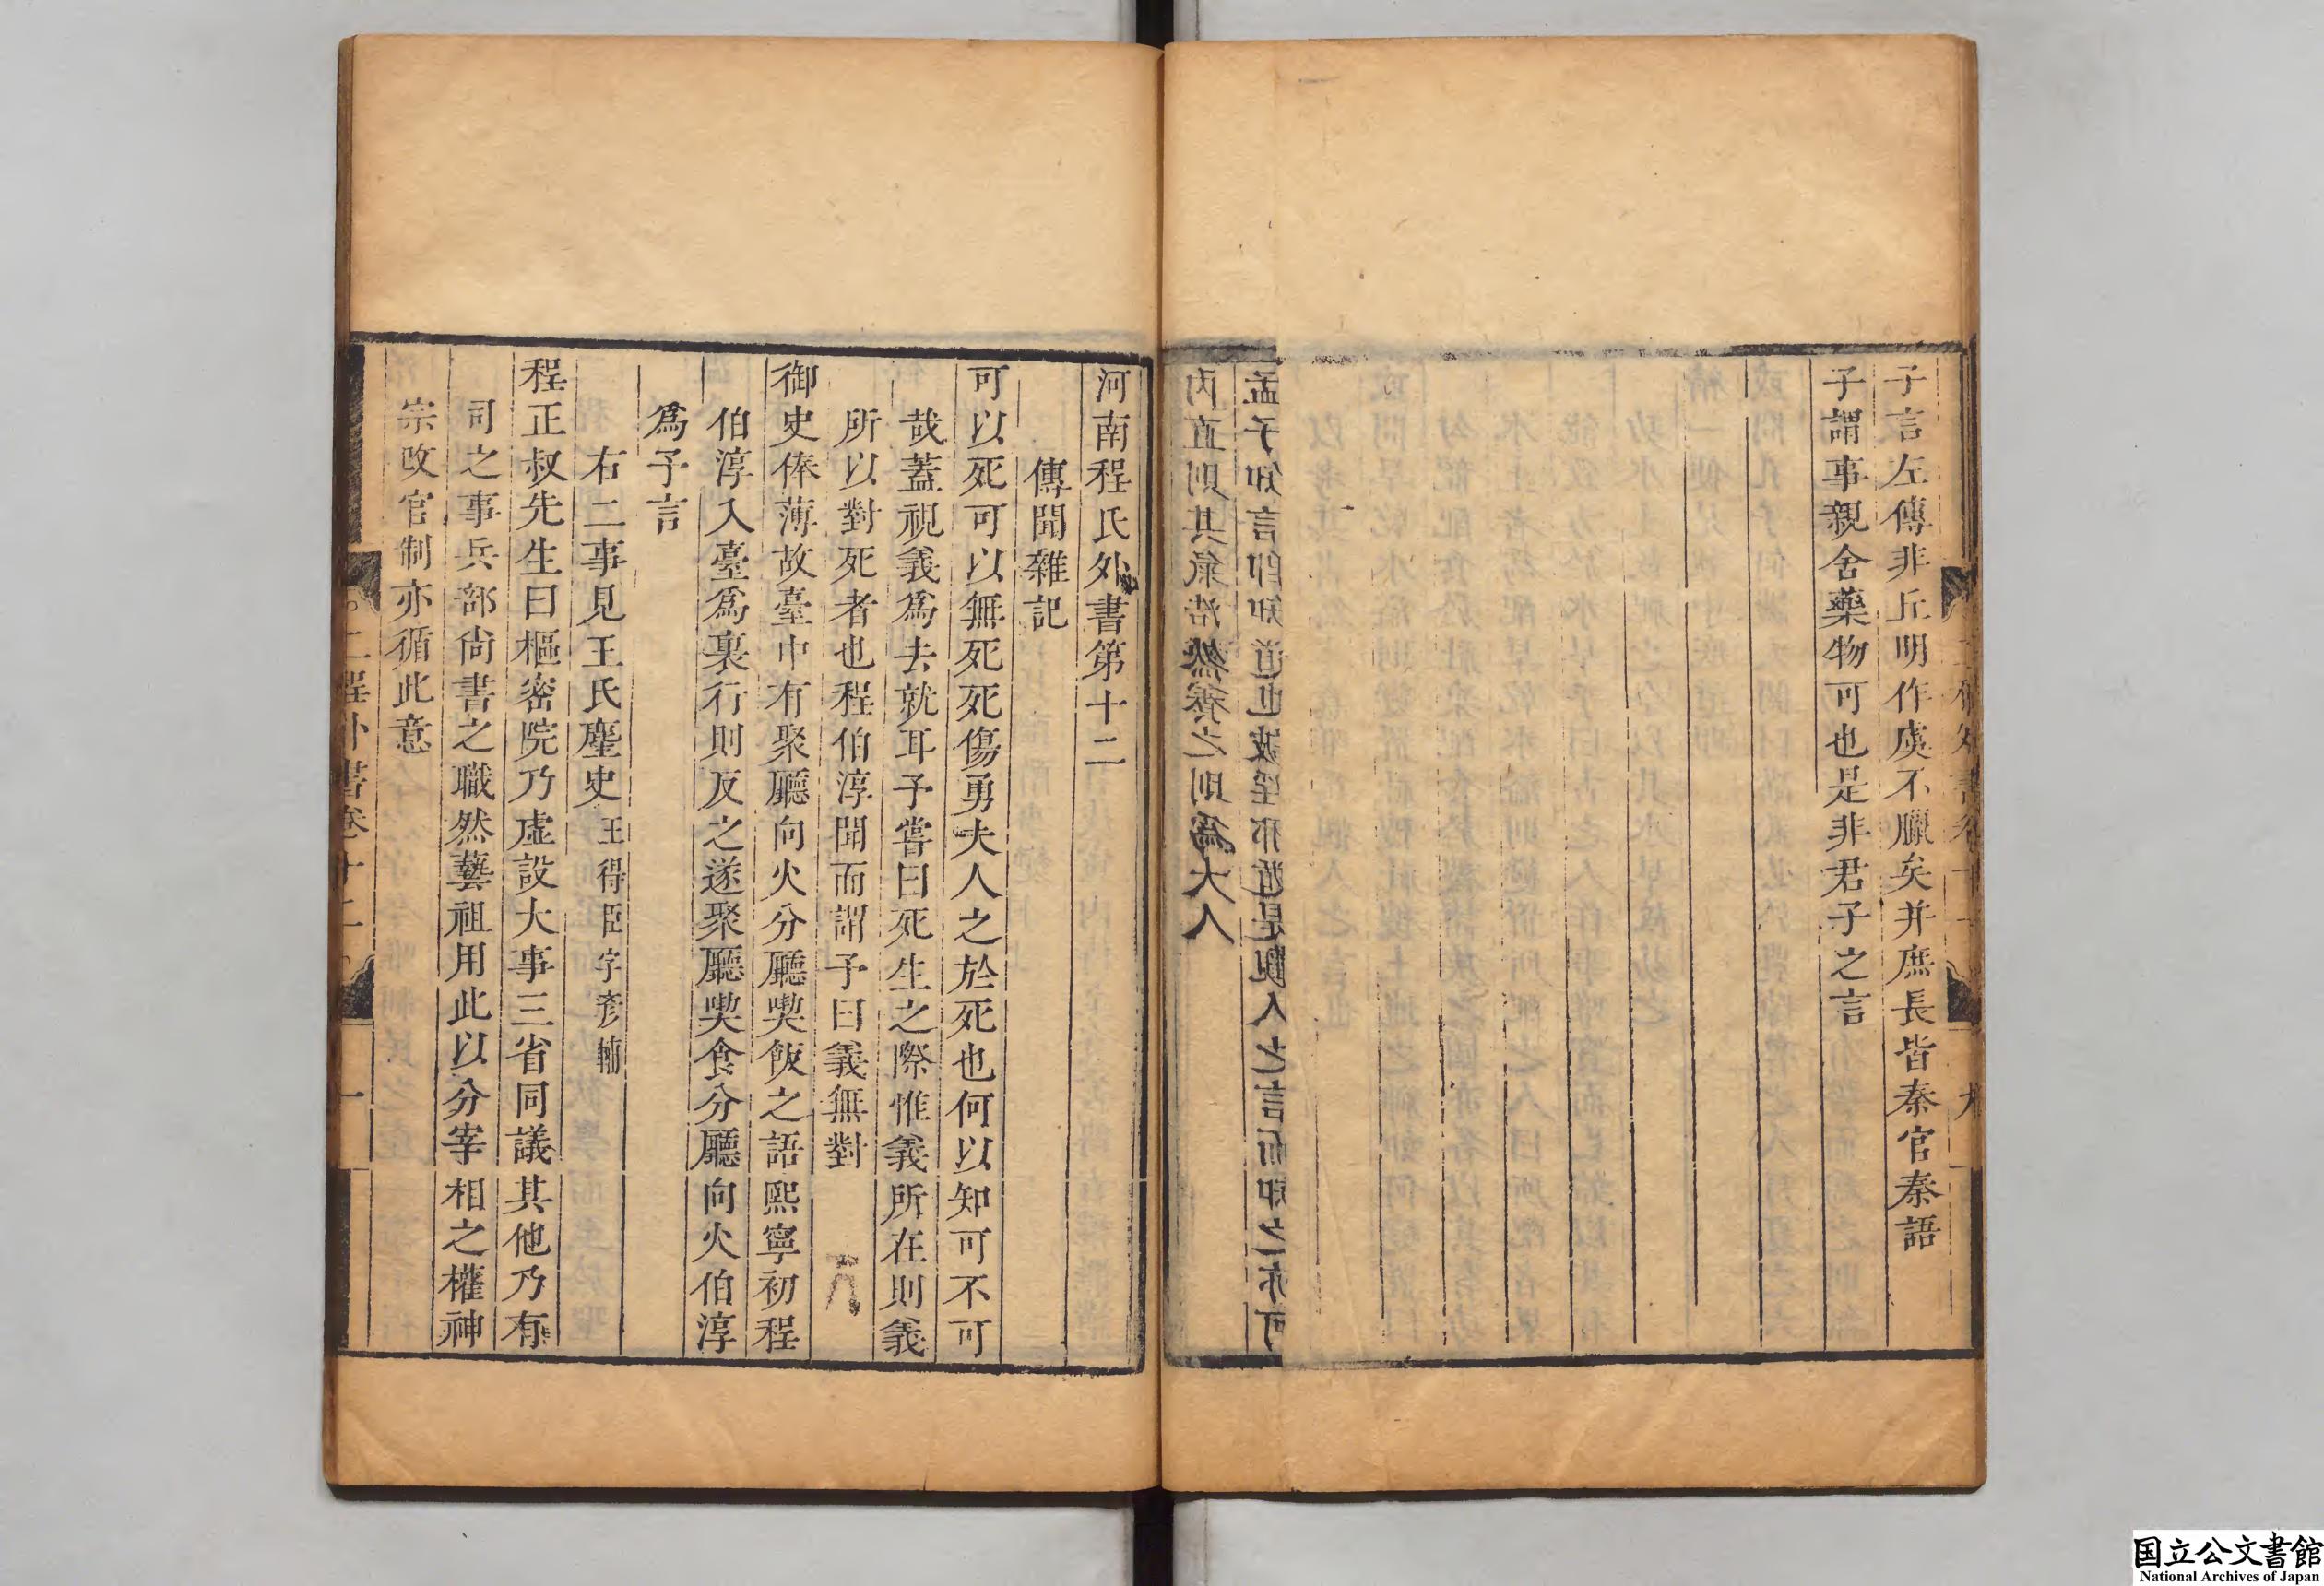 子言左傳非丘明作虞不臘矣并庶長皆秦官秦語
子謂事親舍藥物可也是非君子之言
孟子知言即知道也詖淫邪遁是觀人之言而知之亦可
内直則其氣浩然養之則爲大人
河南程氏外書第十二
傳聞雜記
可以死可以無死死傷勇夫人之於死也何以知可不可
哉蓋視義爲去就耳予嘗曰死生之際惟義所在則義
所以對死者也程伯淳聞而謂予曰義無對
御史俸薄故臺中有聚廳向火分廳喫飯之語熙寧初程
伯淳入臺爲裏行則反之遂聚廳喫食分廳向火伯淳
爲予言
右二事見王氏麈史王得臣字彦輔
程正叔先生曰樞密院乃虛設大事三省同議其他乃有
司之事兵部尚書之職然藝祖用此以分宰相之權神
宗改官制亦循此意
二程外書卷十二
一
国立公文書館
National Archives of Japan